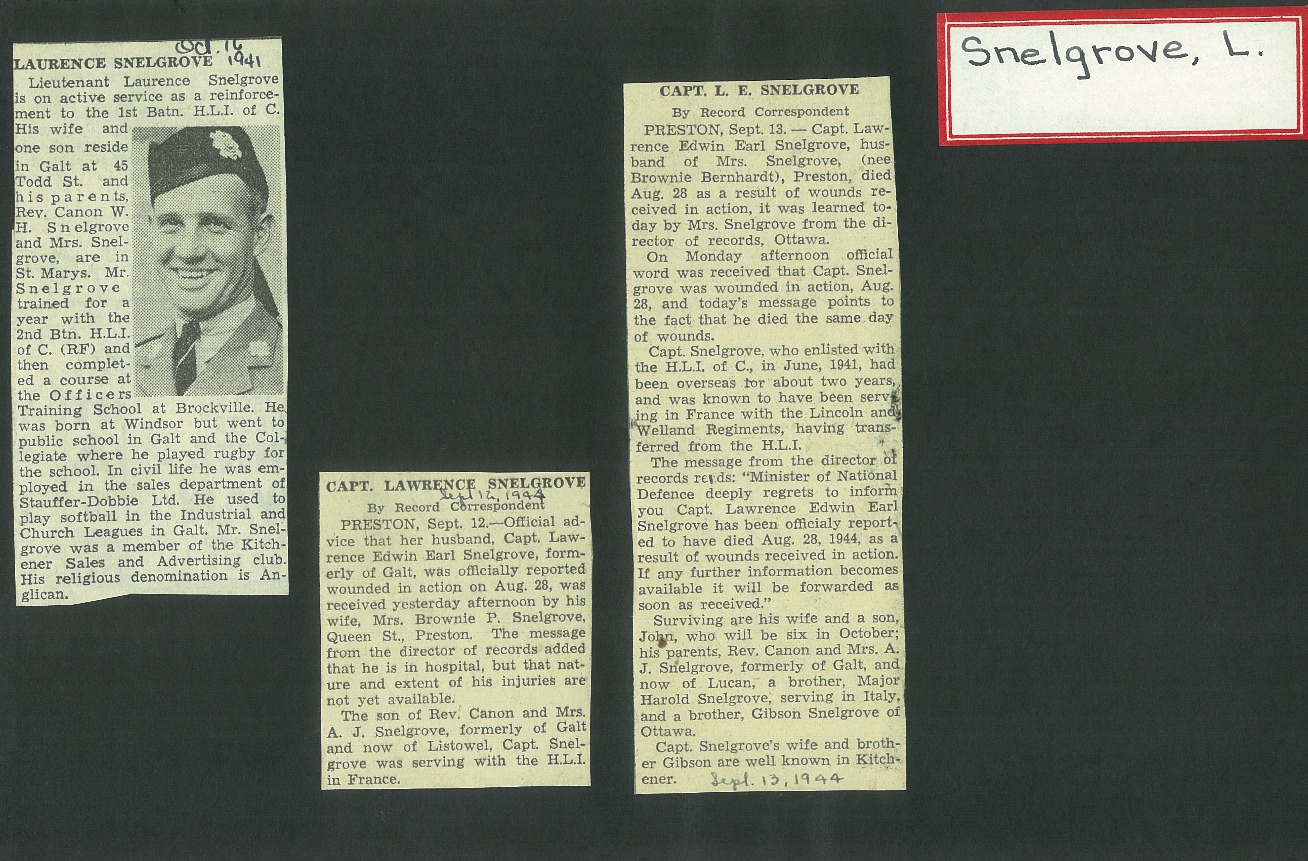 Oct. 16
1941
LAURENCE SNELGROVE
Lieutenant Laurence Snelgrove
is on active service as a reinforce-
ment to the 1st Batn. H.L.I. of C.
His wife and
one son reside
in Galt at 45
Todd St. and
his parents,
Rev. Canon W.
H. Snelgrove
and Mrs. Snel-
grove, are in
St. Marys. Mr.
Snelgrove
trained for a
year with the
2nd Btn. H.L.I.
of C. (RF) and
then complet-
ed a course at
the Officers
Training School at Brockville. He
was born at Windsor but went to
public school in Galt and the Col-
legiate where he played rugby for
the school. In civil life he was em-
ployed in the sales department of
Stauffer-Dobbie Ltd. He used to
play softball in the Industrial and
Church Leagues in Galt. Mr. Snel-
grove was a member of the Kitch-
ener Sales and Advertising club.
His religious denomination is An-
glican.
CAPT. LAWRENCE SNELGROVE
Sept 12, 1944
By Record Correspondent
PRESTON, Sept. 12.—Official ad-
vice that her husband, Capt. Law-
rence Edwin Earl Snelgrove, form-
erly of Galt, was officially reported
wounded in action on Aug. 28, was
received yesterday afternoon by his
wife, Mrs. Brownie P. Snelgrove,
Queen St., Preston. The message
from the director of records added
that he is in hospital, but that nat-
ure and extent of his injuries are
not yet available.
The son of Rev. Canon and Mrs.
A. J. Snelgrove, formerly of Galt
and now of Listowel, Capt. Snel-
grove was serving with the H.L.I.
in France.
CAPT. L. E. SNELGROVE
By Record Correspondent
PRESTON, Sept. 13. — Capt. Law-
rence Edwin Earl Snelgrove, hus-
band of Mrs. Snelgrove, (nee
Brownie Bernhardt), Preston, died
Aug. 28 as a result of wounds re-
ceived in action, it was learned to-
day by Mrs. Snelgrove from the di-
rector of records, Ottawa.
On Monday afternoon official
word was received that Capt. Snel-
grove was wounded in action, Aug.
28, and today's message points to
the fact that he died the same day
of wounds.
Capt. Snelgrove, who enlisted with
the H.L.I. of C., in June, 1941, had
been overseas for about two years,
and was known to have been serv-
ing in France with the Lincoln and
Welland Regiments, having trans-
ferred from the H.L.I.
The message from the director of
records reads: "Minister of National
Defence deeply regrets to inform
you Capt. Lawrence Edwin Earl
Snelgrove has been officialy report-
ed to have died Aug. 28, 1944, as a
result of wounds received in action.
If any further information becomes
available it will be forwarded as
soon as received."
Surviving are his wife and a son,
John, who will be six in October;
his parents, Rev. Canon and Mrs. A.
J. Snelgrove, formerly of Galt, and
now of Lucan, a brother, Major
Harold Snelgrove, serving in Italy,
and a brother, Gibson Snelgrove of
Ottawa.
Capt. Snelgrove's wife and broth-
er Gibson are well known in Kitch-
ener.
Sept. 13, 1944
Snelgrove, L.